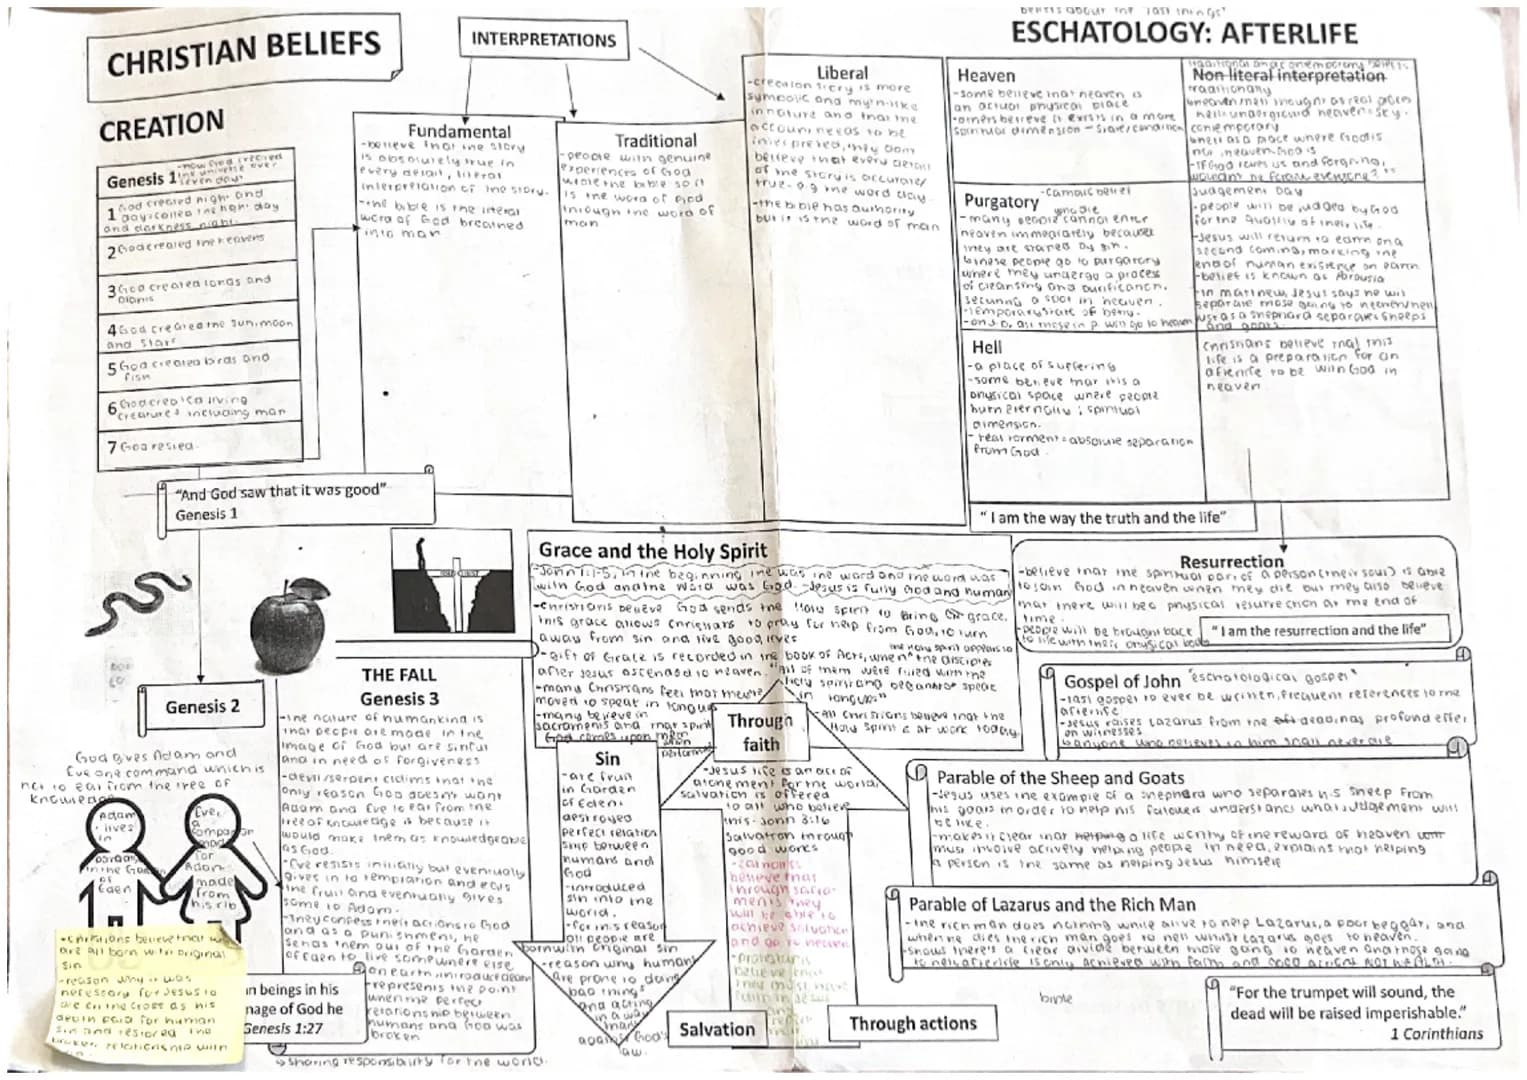 CHRISTIAN BELIEFS
INTERPRETATIONS
beliefs about the 'last things'
ESCHATOLOGY: AFTERLIFE
CREATION
Genesis 1
-how God created
the universe over
seven days
1 God created night and
day: called the light day
and darkness night
2 God created the heavens
3 God created lands and
plants
4 God created the sun, moon
and stars
5 God created birds and
fish
6 God created living
creatures including man
7 God rested.
Fundamental
-believe that the story
is absolutely true in
every detail, literal
interpretation of the story.
-the bible is the literal
word of God breathed
into man
Traditional
-people with genuine
experiences of God
wrote the bible so it
is the word of God
through the word of
man
Liberal
-creation story is more
symbolic and myth-like
in nature and that the
account needs to be
interpreted, they don't
believe that every detail
of the story is accurate/
true-e.g the word day
-the bible has authority
but it is the word of man
Heaven
-some believe that heaven is
an actual physical place
-others believe it exists in a more
spiritual dimension - state/condition
Non literal interpretation
traditionally
heaven/hell thought as real places
hell=underground heaven=sky.
contemporary
hell as a place where God is
not, heaven=God is
-if God loves us and forgiving,
wouldn't he forgive everyone?
Purgatory
-Catholic belief
-many people who die cannot enter
heaven immediately because
they are stained by sin.
these people go to purgatory
where they undergo a process
of cleansing and purification,
securing a spot in heaven.
-temporary state of being.
-on J.D, all those in P. will go to heaven
Judgement Day
-people will be judged by God
for the quality of their life.
-Jesus will return to earth on a
second coming, marking the
end of human existence on earth
-belief is known as Parousia
-in matthew, Jesus says he will
separate those going to heaven/hell
just as a shepherd separates sheeps
and goats.
Hell
-a place of suffering
-some believe that it is a
physical space where people
burn eternally; spiritual
dimension.
-real torment=absolute separation
from God.
Christians believe that this
life is a preparation for an
afterlife to be with God in
heaven.
"And God saw that it was good"
Genesis 1
" I am the way the truth and the life"
Grace and the Holy Spirit
-John 1:1-5, in the beginning the was the word and the word was
with God and the Word was God. -Jesus is fully God and human
-Christians believe God sends the Holy Spirit to bring grace.
this grace allows Christians to pray for help from God, to turn
away from sin and live good lives
-gift of Grace is recorded in the book of Acts, when the Holy spirit appears to the disciples
after Jesus ascended to heaven. "All of them were filled with the
Holy spirit and began to speak
in tongues"
-many Christians feel that they're
moved to speak in tongues
-many believe in
sacraments and that spirit
God comes upon them
when
performed
-All Christians believe that the
Holy Spirit is at work today.
Resurrection
-believe that the spiritual part of a person (their soul) is able
to join God in heaven when they die but they also believe
that there will be a physical resurrection at the end of
time.
-people will be brought back
to life with their physical body
" I am the resurrection and the life"
Genesis 2
God gives Adam and
Eve one command which is
not to eat from the tree of
knowledge
Adam
-lives
in
in the Garden
of
Eden
Eve,
a
companion
made
for
Adam
made
from
his rib
THE FALL
Genesis 3
-the nature of humankind is
that people are made in the
image of God but are sinful
and in need of forgiveness
-devil/serpent claims that the
only reason God doesn't want
Adam and Eve to eat from the
tree of knowledge is because it
would make them as knowledgeable
as God.
-Eve resists initially but eventually
gives in to temptation and eats
the fruit and eventually gives
some to Adam.
-They confess their actions to God
and as a punishment, he
sends them out of the Garden
of Eden to live somewhere else
on earth
-represents the point
when the perfect
relationship between
humans and God was
broken
Sin
-ate fruit
in Garden
of Eden:
destroyed
perfect relation
ship between
humans and
God
-introduced
sin into the
world.
-for this reason
all people are
born with original sin
-reason why humans
are prone to doing
bad things
and acting
in a way
that's
against God's
law.
Through
faith
-Jesus life is an act of
atonement for the world,
salvation is offered
to all who believe
this-John 3:16
salvation through
good works
-Catholics
believe that
through sacra-
ments they
will be able to
achieve salvation
and go to heaven
-protestants
believe that
they must have
faith in Jesus
Salvation
Through actions
Gospel of John "eschatological gospel"
-last gospel to ever be written, frequent references to the
afterlife
-Jesus raises Lazarus from the dead, has profound effect
on witnesses
anyone who believes in him shall never die
Parable of the Sheep and Goats
-Jesus uses the example of a shepherd who separates his sheep from
his goats in order to help his followers understand what judgement will
be like.
-makes it clear that helping a life worthy of the reward of heaven
must involve actively helping people in need, explains that helping
a person is the same as helping Jesus himself
Parable of Lazarus and the Rich Man
-the rich man does nothing while alive to help Lazarus, a poor beggar, and
when he dies the rich man goes to hell whilst Lazarus goes to heaven.
-shows there's clear divide between those going to heaven and those going
to hell: afterlife is only achieved with faith and good actions NOT WEALTH.
bible
"For the trumpet will sound, the
dead will be raised imperishable."
1 Corinthians
-Christians believe that we
are all born with original
sin
-reason why it was
necessary for Jesus to
die on the cross as his
death paid for human
sin and restored the
broken relationship with
n beings in his
nage of God he
Genesis 1:27
sharing responsibility for the world.